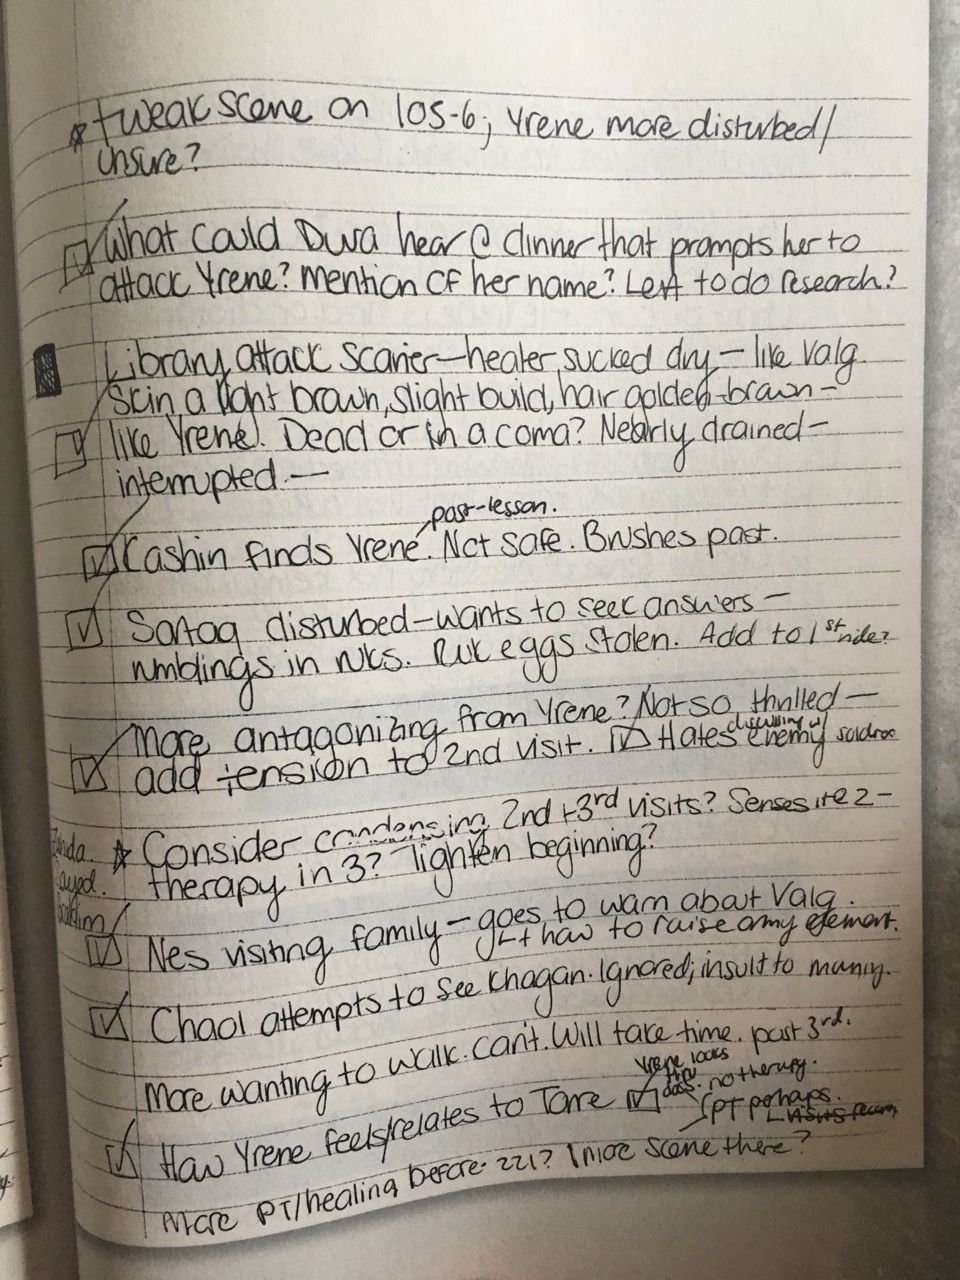 ☆ tweak scene on 105-6; Yrene more disturbed/
unsure?
☑ What could Duva hear @ dinner that prompts her to
attack Yrene? Mention of her name? Left to do research?
Library attack scarier—healer sucked dry—like Valg.
Skin a light brown, slight build, hair golden-brown—
☑ like Yrene. Dead or in a coma? Nearly drained—
interrupted.—
post-lesson.
☑ Kashin finds Yrene. Not safe. Brushes past.
☑ Sartaq disturbed—wants to seek answers—
rumblings in ruks. Ruk eggs stolen. Add to 1st ride?
More antagonizing from Yrene? Not so thrilled—
☑ add tension to 2nd visit. ☑ Hates discussing w/ enemy
☆ Consider condensing 2nd + 3rd visits? Senses it e 2—
therapy in 3? Tighten beginning?
☑ Nes visiting family—goes to warn about Valg.
↳ + how to raise army element.
☑ Chaol attempts to see Khagan. Ignored; insult to many.
More wanting to walk. Can't. Will take time. post 3rd.
Yrene locks
no therapy.
☑ How Yrene feels/relates to Torre ☑
PT perhaps.
More PT/healing before 221? 1 more scene there?